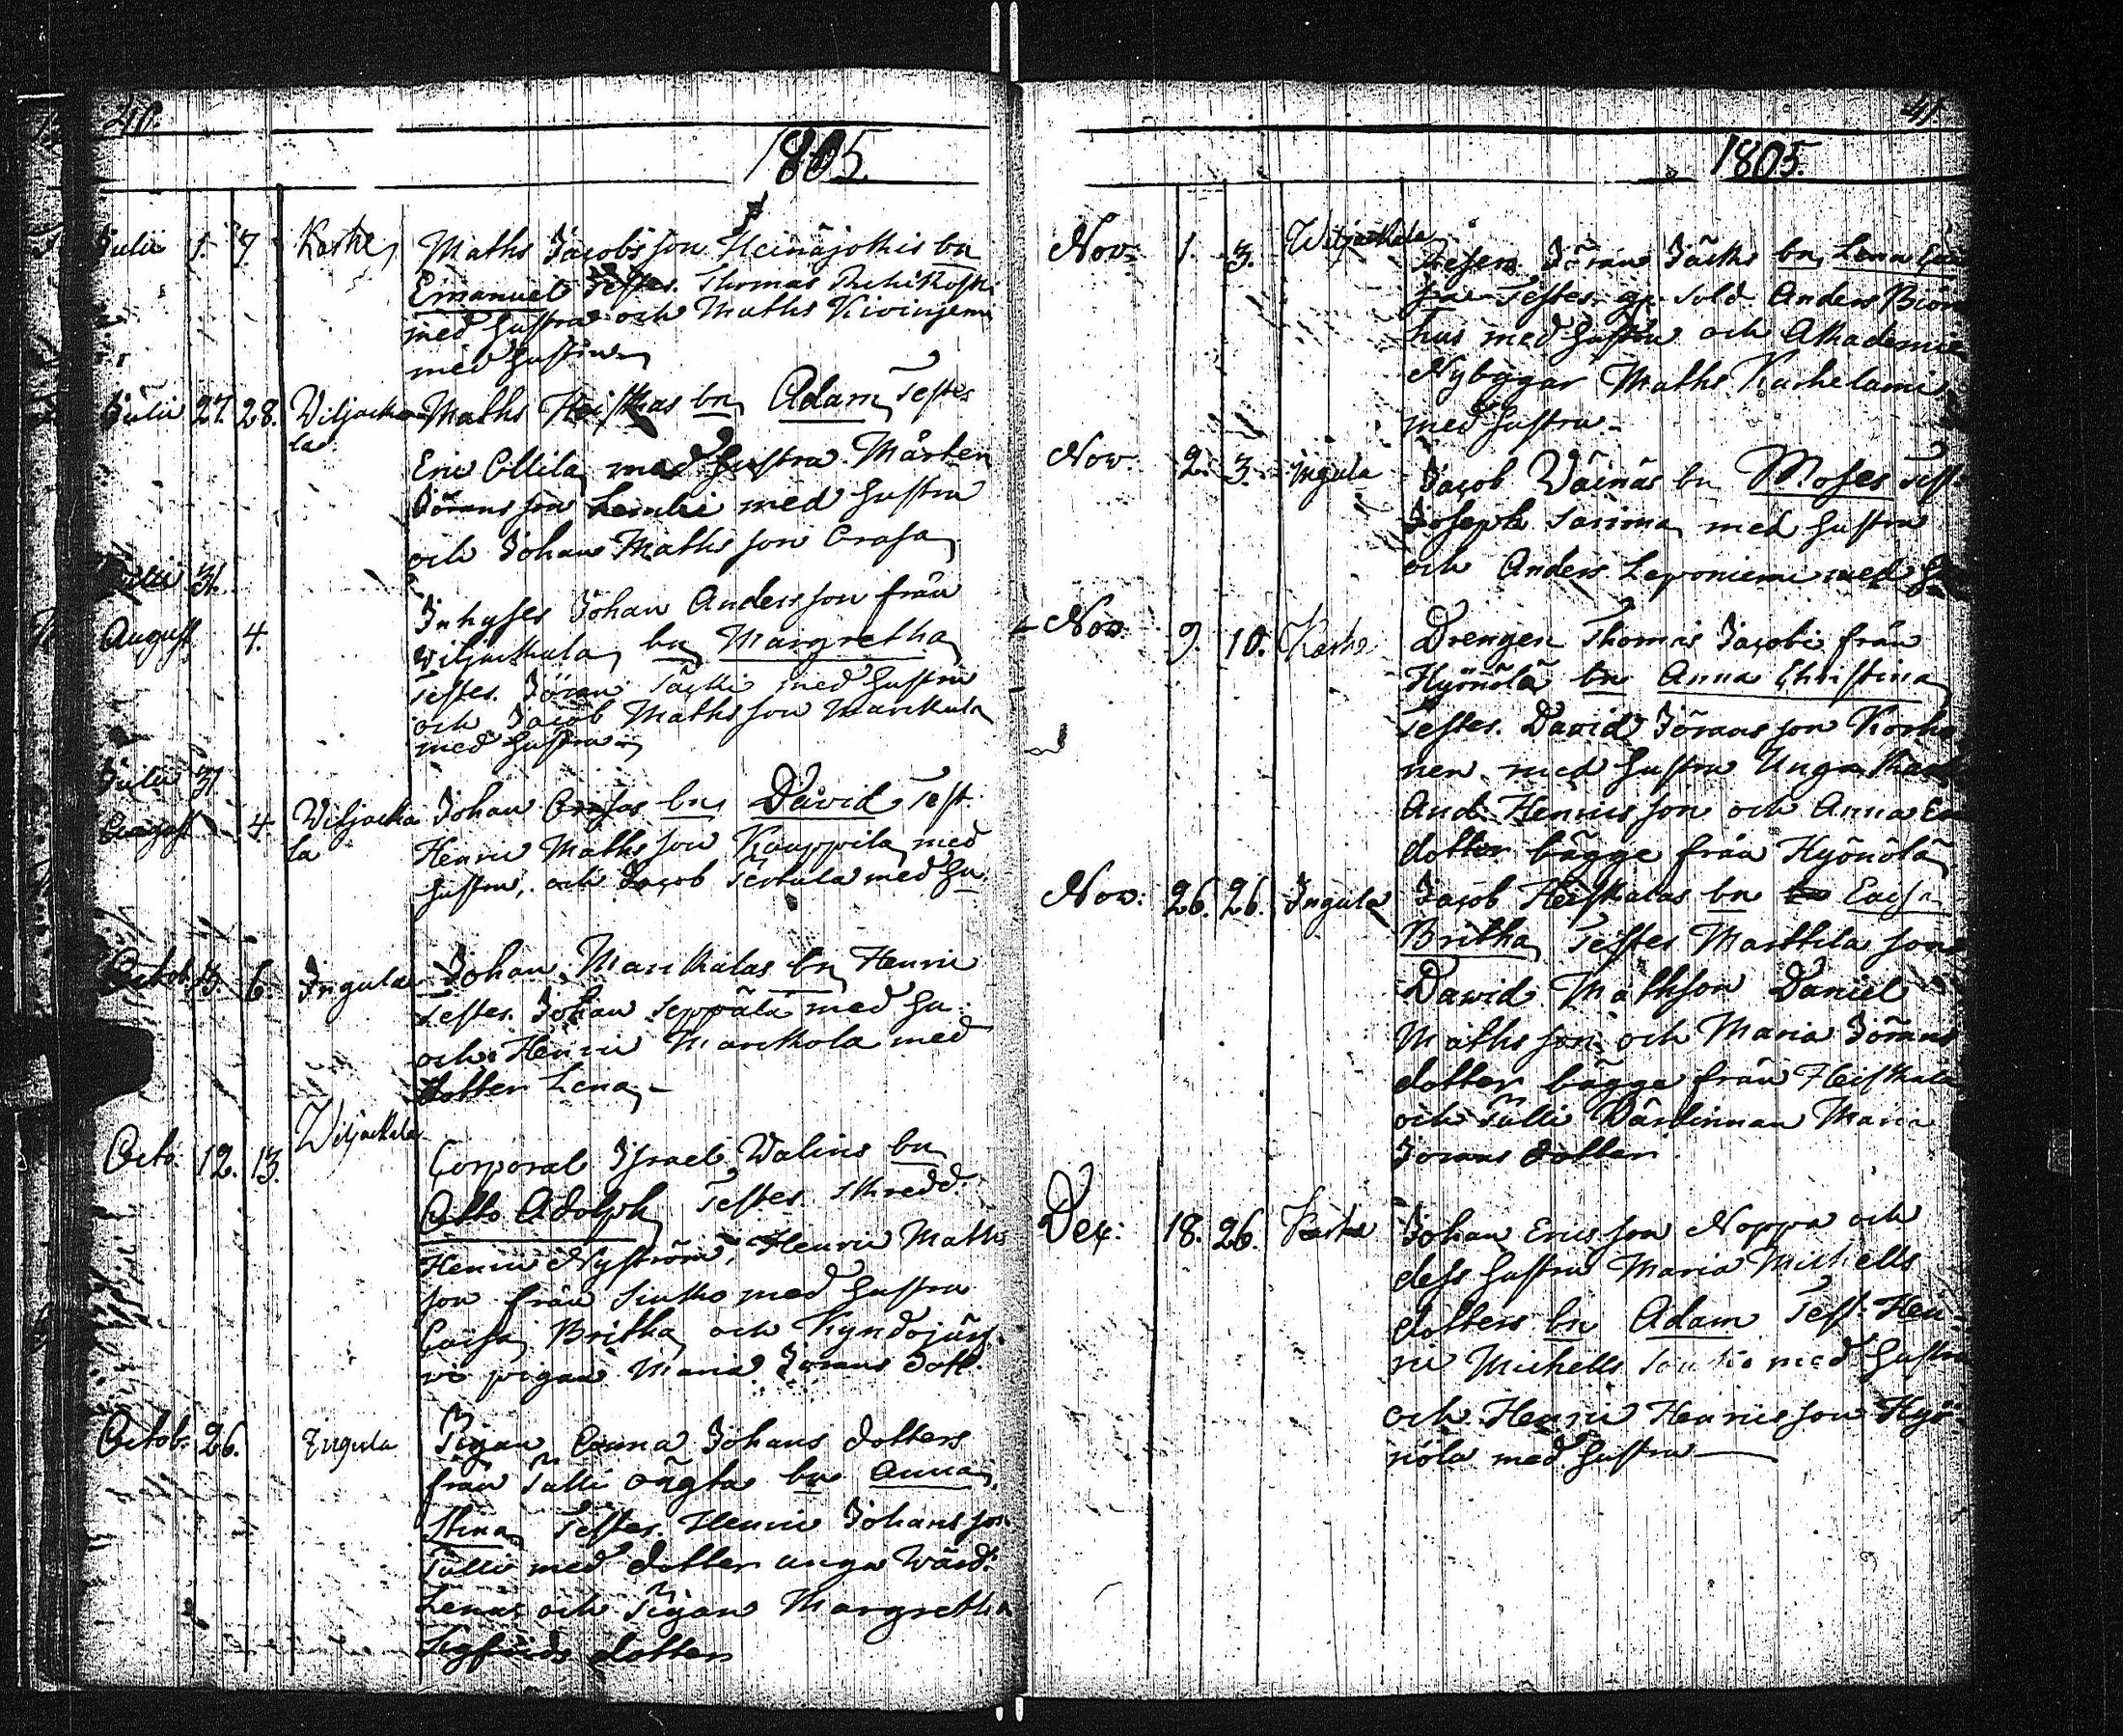 40.
1805.
Julii 5. 7. Karhe Maths Jacobsson Heinäjokis bn
Emanuel Testes. Thomas
med hustru och Maths Kiviniemi
med hustru
Julii 27. 28. Viljacka Maths Heiskas bn Adam Testes
la
Eric Ollila med hustru Mårten
Jöransson Lembi med hustru
och Johan Mathsson Orasa
Julii 31.
Inhyses Johan Andersson från
August 4. Wiljackala bn Margretha
Testes. Jöran Jäski med hustru
och Jacob Mathsson Marckula
med hustru
Julii 31
August 4. Viljacka Johan Orasas bn David Test.
la Henric Mathsson Kauppila med
hustru, och Jacob Tertula med hu.
Octob. 5. 6. Ingula Johan Marckalas bn Henric
Testes. Johan Seppälä med hu:
och Henric Marckola med
dotter Lena
Octo: 12. 13. Wiljackala
Corporal Israel Walins bn
Otto Adolph Testes. Skredd.
Henric Nyström, Henric Maths
son från med hustru
Caisa Britha och Kyndöjärf-
vi pigan Maria Jörans dott.
Octob. 26. Ingula Pigan Anna Johans dotters
från Tulli oägta bn Anna
Stina Testes. Henric Johansson
Tulli med dotter unga Wärd:
Lenas och Pigan Margretha
Sigfrids dotter
41.
1805.
Nov: 1. 3. Wiljackala
Jöran Jäskis bn Lena
Testes. gr. Sold. Anders Biörn
hus med hustru och Akademie
Nybygar Maths Karhelami
med hustru
Nov 2. 3. Ingula Jacob Väinäs bn Moses Test.
Joseph Sarima med hustru
och Anders Leponiemi med
Nov. 9. 10. Karhe Drengen Thomas Jacobi från
Hyönölä bn Anna Christina
Testes. David Jöransson Korho
nen med hustru Unga
And. Henricsson och Anna
dotter bägge från Hyönölä
Nov: 26. 26. Ingula Jacob Heiskalas bn Caisa
Britha Testes Marttila
David Mathsson Daniel
Mathsson och Maria Jörans
dotter bägge från Heiskala
och Tulli Värdinnan Maria
Jörans dotter
Dec: 18. 26. Karhe Johan Ericsson Noppa och
dess hustru Maria Michells
dotters bn Adam Test: Hen-
ric Michells med hustru
och Henric Henricsson Hyö-
nölä med hustru